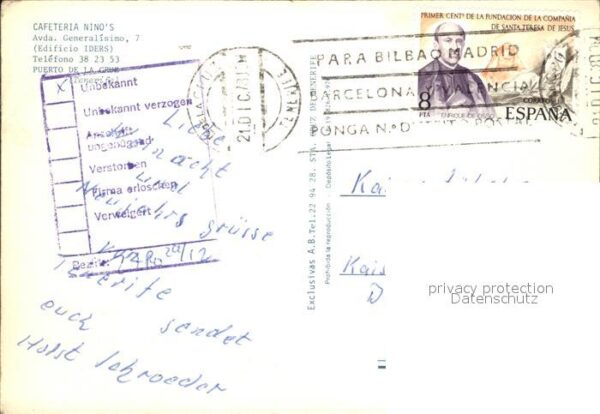 CAFETERIA NINO'S
Avda. Generalísimo, 7
(Edificio IDERS)
Teléfono 38 23 53
PUERTO DE LA CRUZ
(Tenerife)
X Unbekannt
Unbekannt verzogen
Anschrift
ungenügend
Verstorben
Firma erloschen
Verweigert
Bezirk:
Liebe
Weihnacht
und
Neujahrs grüsse
Tenerife
euch sendet
Horst Schroeder
21.DIC78
TENERIFE
PARA BILBAO MADRID
BARCELONA Y VALENCIA
PONGA N.º DISTRITO POSTAL
PRIMER CENTº DE LA FUNDACION DE LA COMPAÑIA
DE SANTA TERESA DE JESUS
8
PTA
ENRIQUE DE OSSO
CORREOS
ESPAÑA
Exclusivas A.B. Tel. 22 94 28. STA. CRUZ DE TENERIFE
Prohibida la reproducción
Kais
D
privacy protection
Datenschutz